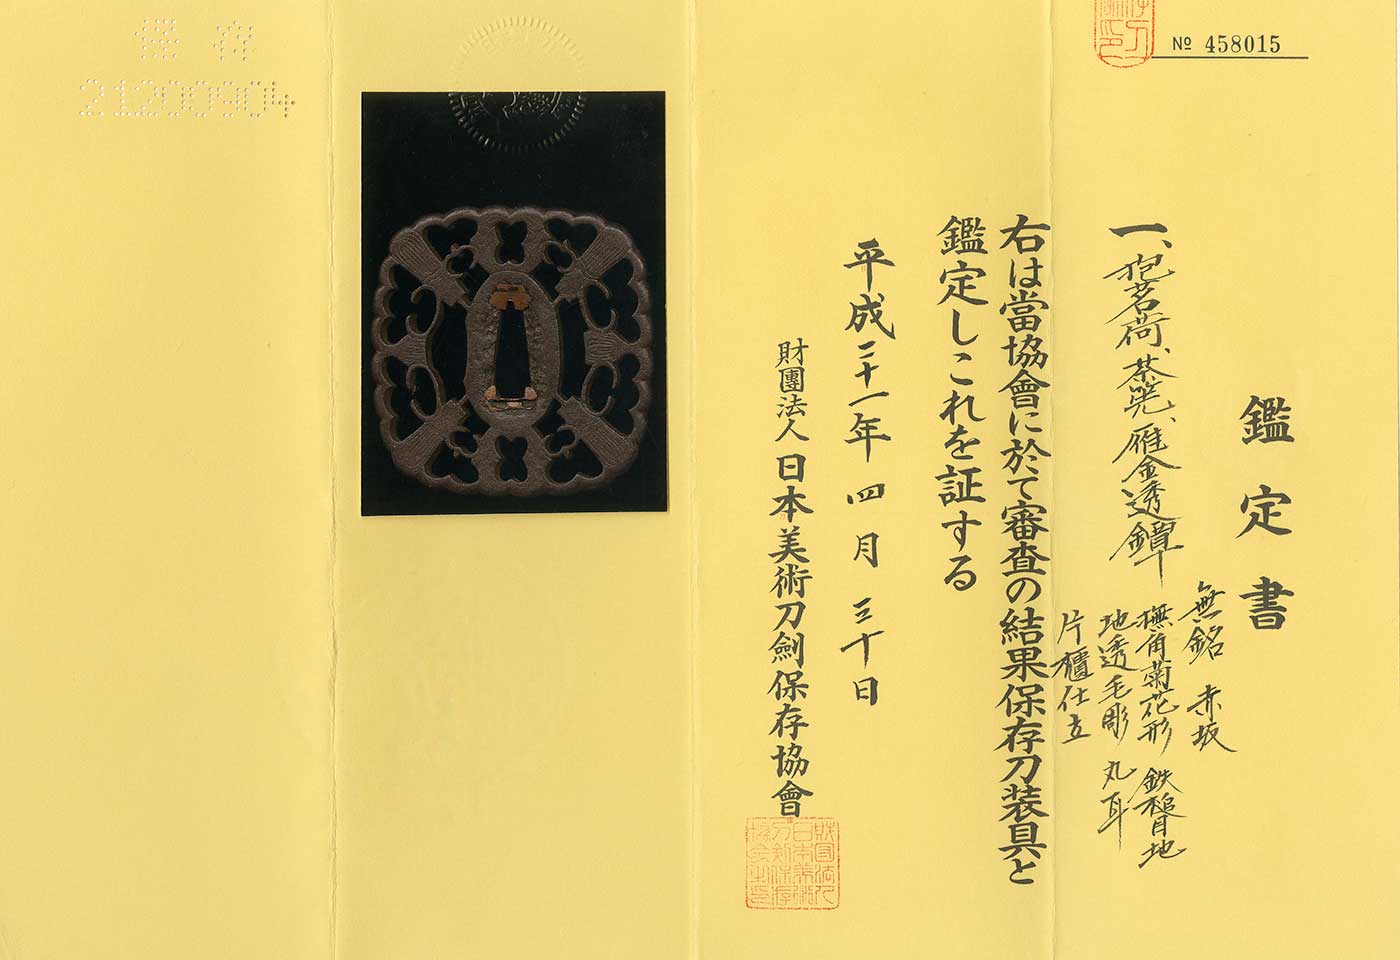 № 458015
鑑定書
一、抱茗荷、茶筅、雁金透鐔
無銘 赤坂
撫角菊花形 鉄槌目地
地透毛彫 丸耳
片櫃仕立
右は當協會に於て審査の結果保存刀装具と
鑑定しこれを証する
平成二十一年 四月 三十日
財團法人日本美術刀劍保存協會
保存
21200904